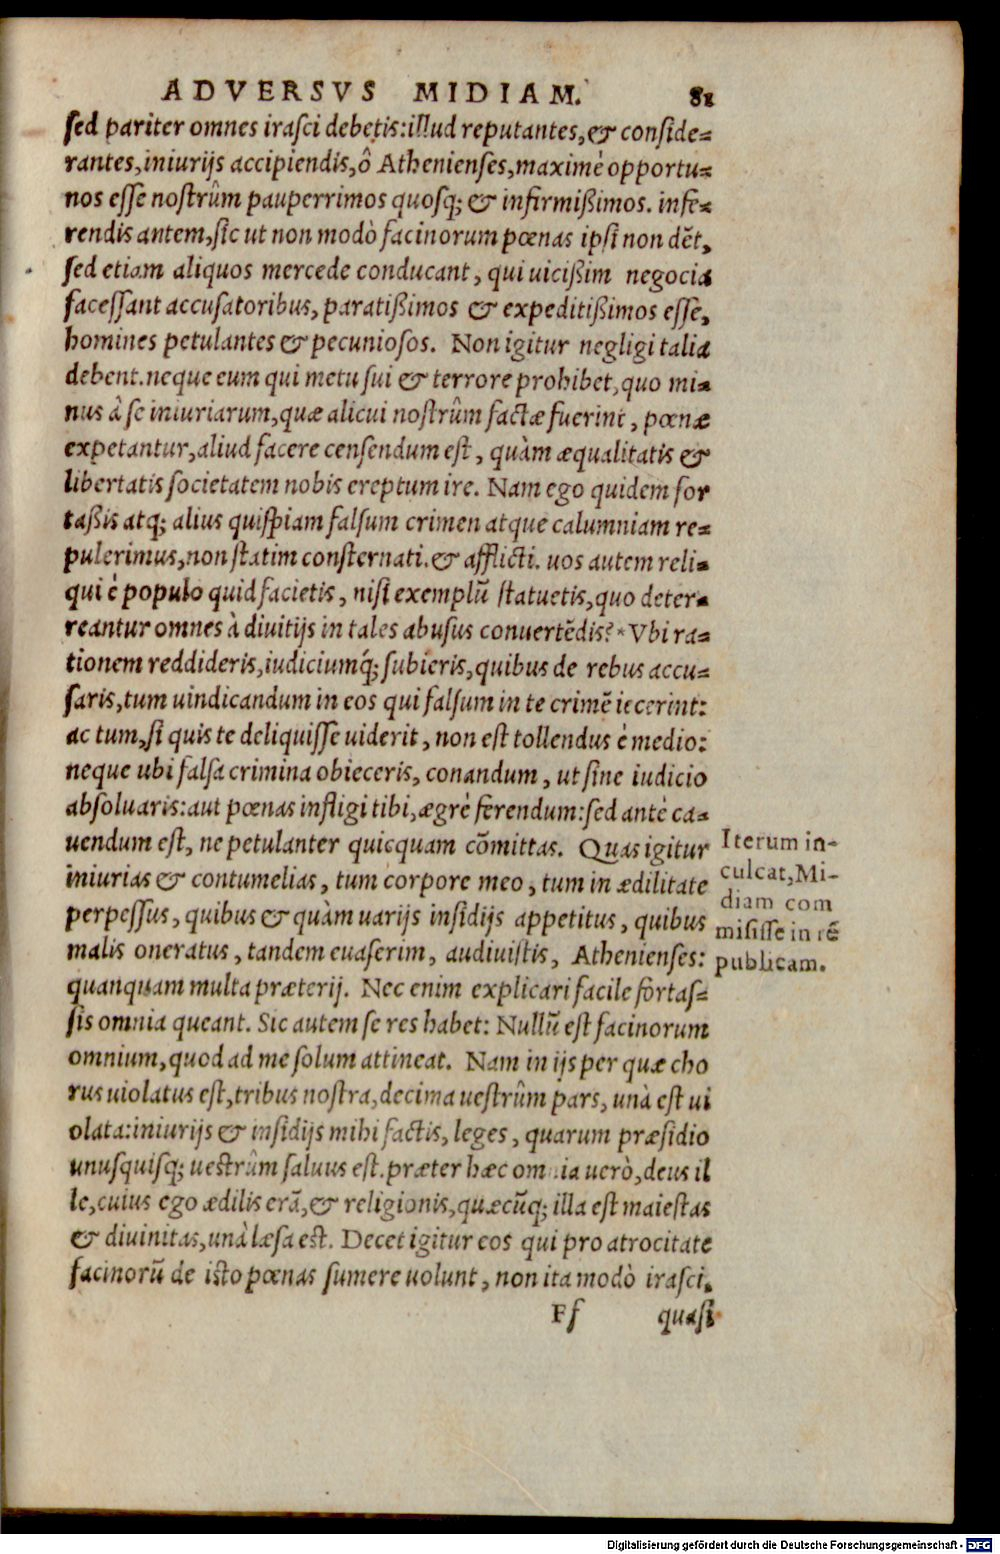 ADVERSVS MIDIAM. 81
sed pariter omnes irasci debetis: illud reputantes, & conside-
rantes, iniurijs accipiendis, ô Athenienses, maximè opportu-
nos esse nostrûm pauperrimos quosq; & infirmißimos. infe-
rendis antem, sic ut non modò facinorum pœnas ipsi non dẽt,
sed etiam aliquos mercede conducant, qui uicißim negocia
facessant accusatoribus, paratißimos & expeditißimos esse,
homines petulantes & pecuniosos. Non igitur negligi talia
debent. neque eum qui metu sui & terrore prohibet, quo mi-
nus à se iniuriarum, quæ alicui nostrûm factæ fuerint, pœnæ
expetantur, aliud facere censendum est, quàm æqualitatis &
libertatis societatem nobis ereptum ire. Nam ego quidem for
taßis atq; alius quispiam falsum crimen atque calumniam re-
pulerimus, non statim consternati. & afflicti. uos autem reli-
qui è populo quid facietis, nisi exemplũ statuetis, quo deter-
reantur omnes à diuitijs in tales abusus conuertẽdis? * Vbi ra-
tionem reddideris, iudiciumq́; subieris, quibus de rebus accu-
saris, tum uindicandum in eos qui falsum in te crimẽ iecerint:
ac tum, si quis te deliquisse uiderit, non est tollendus è medio:
neque ubi falsa crimina obieceris, conandum, ut sine iudicio
absoluaris: aut pœnas infligi tibi, ægrè ferendum: sed antè ca-
uendum est, ne petulanter quicquam cõmittas. Quas igitur
iniurias & contumelias, tum corpore meo, tum in ædilitate
perpessus, quibus & quàm uarijs insidijs appetitus, quibus
malis oneratus, tandem euaserim, audiuistis, Athenienses:
quanquam multa præterij. Nec enim explicari facile fortas-
sis omnia queant. Sic autem se res habet: Nullũ est facinorum
omnium, quod ad me solum attineat. Nam in ijs per quæ cho
rus uiolatus est, tribus nostra, decima uestrûm pars, unà est ui
olata: iniurijs & insidijs mihi factis, leges, quarum præsidio
unusquisq; uestrûm saluus est. præter hæc omnia uerò, deus il
le, cuius ego ædilis erã, & religionis, quæcũq; illa est maiestas
& diuinitas, unà læsa est. Decet igitur eos qui pro atrocitate
facinorũ de isto pœnas sumere uolunt, non ita modò irasci,
Ff quasi
Iterum in-
culcat, Mi-
diam com
misisse in rẽ
publicam.
Digitalisierung gefördert durch die Deutsche Forschungsgemeinschaft - DFG